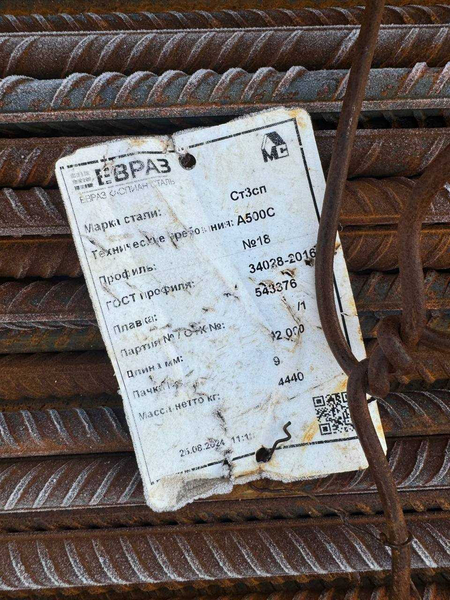 ЕВРАЗ
ЕВРАЗ КАСПИАН СТАЛЬ
МС
Марка стали: Ст3сп
Технические требования: А500С
Профиль: №18
ГОСТ профиля: 34028-2016
Плавка: 543376
Партия № / ОТК №: /1
Длина мм: 12 000
Пачка 9
Масса нетто кг: 4440
26.08.2024 11:1